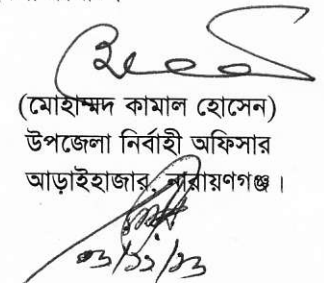 (মোহাম্মদ কামাল হোসেন)
উপজেলা নির্বাহী অফিসার
আড়াইহাজার, নারায়ণগঞ্জ।